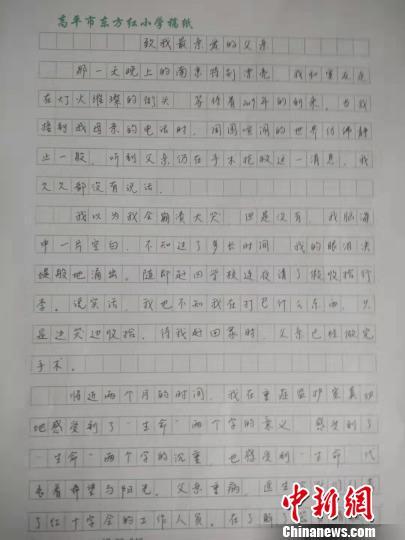 高平市东方红小学稿纸
致我最亲爱的父亲
那一天晚上的南京特别漂亮 我和室友走
在灯火璀璨的街头 等待着2019年的到来。当我
接到我母亲的电话时，周围喧闹的世界仿佛静
止一般。听到父亲仍在手术抢救这一消息，我
久久都没有说话。
我以为我会崩溃大哭 但是没有，我脑海
中一片空白，不知过了多长时间 我的眼泪决
堤般地涌出。随即赶回学校连夜请了假收拾行
李。说实话，我也不知我在打包什么东西，只
是边哭边收拾。待我赶回家时，父亲已经做完
手术。
将近两个月的时间，我在重症监护室真切
地感受到了“生命”两个字的意义 感受到了
“生命”两个字的沉重，也感受到“生命”代
表着希望与阳光。父亲重病，医生
了红十字会的工作人员。在了解
中新网